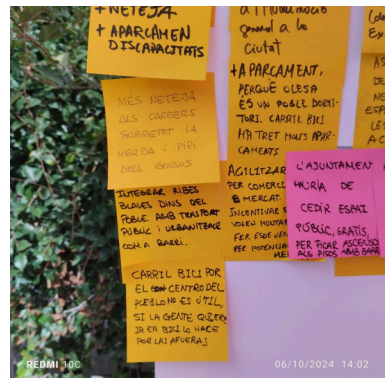 + NETEJA
+ APARCAMEN
DISCAPACITATS
MÉS NETEJA
ALS CARRERS
SOBRETOT LA
MERDA I PIPI
DELS GOSSOS
INTEGRAR RIBES
BLAVES DINS DEL
POBLE AMB TRANSPORT
PÚBLIC I URBANITZACIÓ
COM A BARRI.
CARRIL BICI POR
EL CENTRO DEL
PUEBLO NO ES ÚTIL,
SI LA GENTE QUIERE
IR EN BICI LO HACE
POR LAS AFUERAS
a l'il·luminació
general a la
Ciutat
+ APARCAMENT,
PERQUÈ OLESA
ES UN POBLE DORMI-
TORI. CARRIL BICI
HA TRET MOLTS APAR-
CAMENTS
AGILITZAR
PER COMERÇ
MERCAT.
INCENTIVAR E
VOLEN MUNTAR
FER ESDEVEN
PER POTENCIA
ME
L'AJUNTAMENT
HURIA DE
CEDIR ESPAI
PÚBLIC, GRATIS,
PER FICAR ASCENSO
ALS PISOS AMB BARR
Ex
AS
DE
NE
ESP
LES
A C
REDMI 10C
06/10/2024 14:02